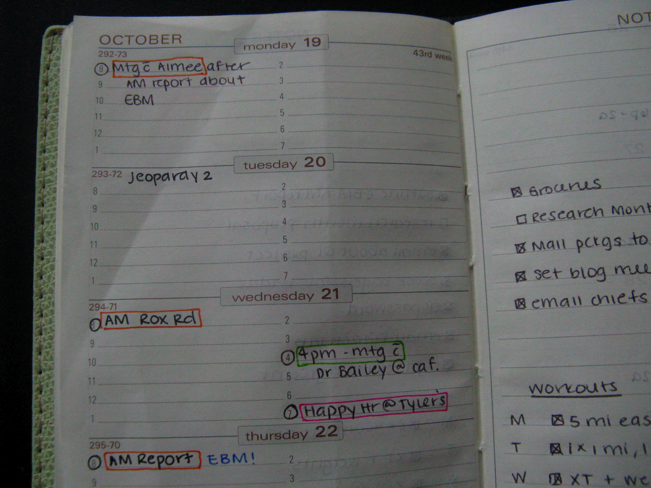 OCTOBER
monday 19
292-73
43rd week
8 Mtg c̄ Aimee after 2
9 AM report about 3
10 EBM 4
11 5
12 6
1 7
tuesday 20
293-72 Jeoparday 2
8 2
9 3
10 4
11 5
12 6
1 7
wednesday 21
294-71
8 AM Rox Rd 2
9 3
10 4 4pm - mtg c̄
11 5 Dr Bailey @ caf.
12 6
1 7 Happy Hr @ Tyler's
thursday 22
295-70
8 AM Report EBM! 2
9 3
NOT
Groceries
Research Mont
Mail pckgs to
set blog mee
email chiefs
Workouts
M 5 mi eas
T 1x1 mi, 1
W XT + we